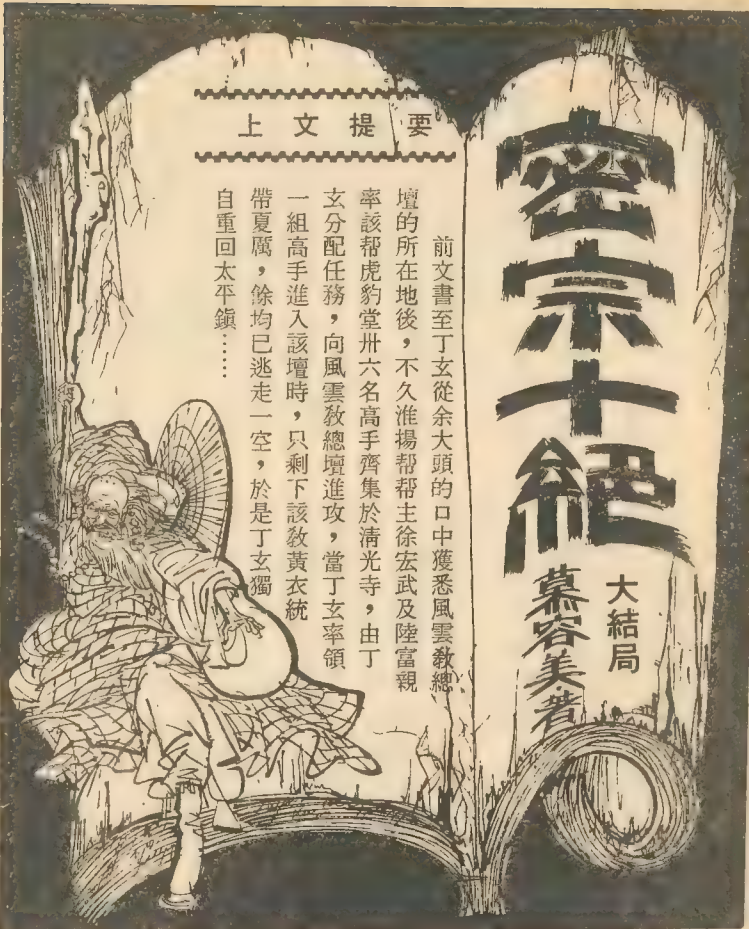 密宗十絕
大結局
慕容美·著
上文提要
前文書至丁玄從余大頭的口中獲悉風雲教總
壇的所在地後，不久淮揚帮帮主徐宏武及陸富親
率該帮虎豹堂卅六名高手齊集於清光寺，由丁
玄分配任務，向風雲教總壇進攻，當丁玄率領
一組高手進入該壇時，只剩下該教黃衣統
帶夏厲，餘均已逃走一空，於是丁玄獨
自重回太平鎮……